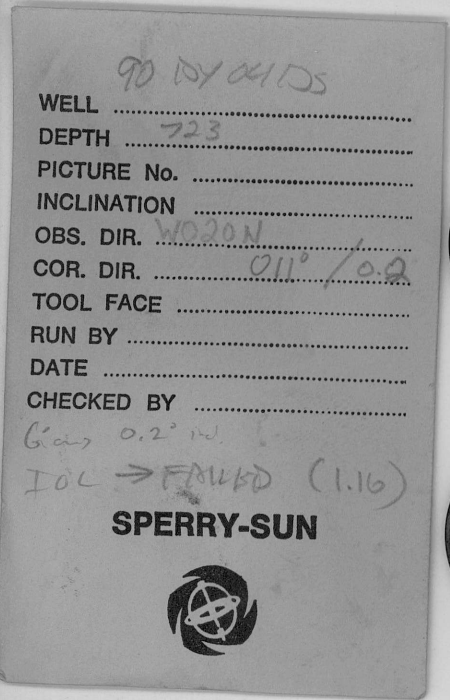 90 DY 04 DS
WELL
DEPTH 723
PICTURE No.
INCLINATION
OBS. DIR. W020N
COR. DIR. 011° / 0.2
TOOL FACE
RUN BY
DATE
CHECKED BY
0.2°
→ FAILED (1.16)
SPERRY-SUN